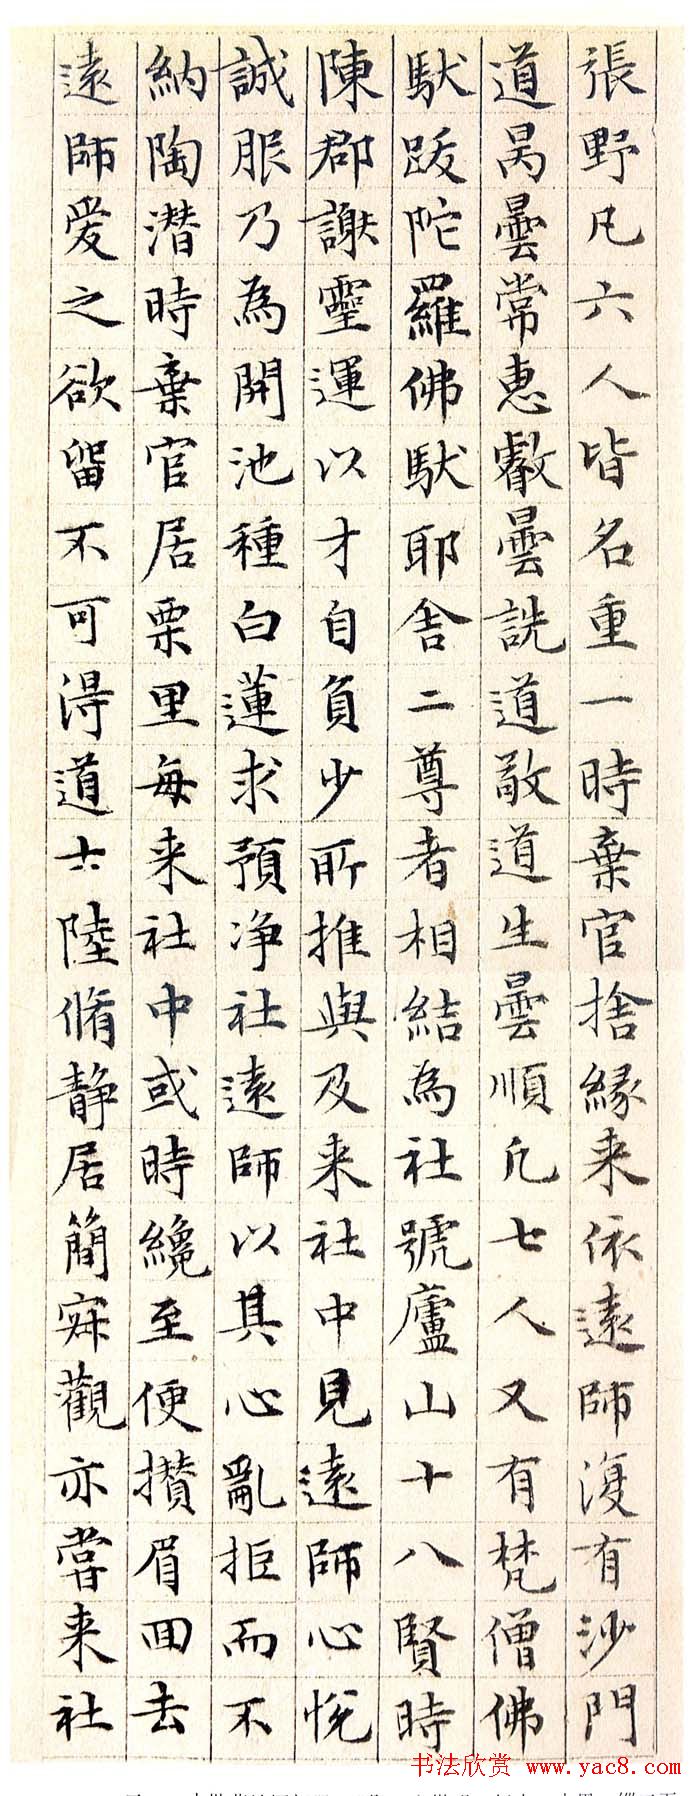 張野凡六人皆名重一時棄官捨緣来依遠師復有沙門
道昺曇常惠叡曇詵道敬道生曇順凡七人又有梵僧佛
馱跋陀羅佛馱耶舍二尊者相結為社號廬山十八賢時
陳郡謝靈運以才自負少所推與及来社中見遠師心悅
誠服乃為開池種白蓮求預净社遠師以其心亂拒而不
納陶潜時棄官居栗里每来社中或時纔至便攢眉回去
遠師愛之欲留不可得道士陸脩静居簡寂觀亦嘗来社
书法欣赏 www.yac8.com